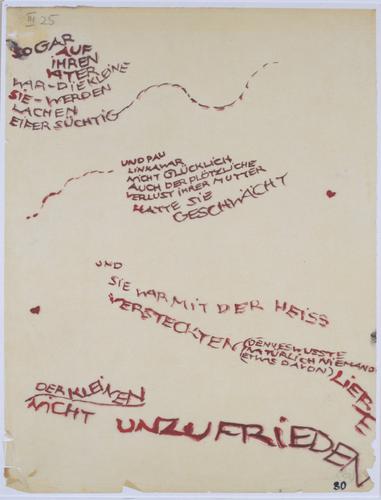 III 25
SOGAR
AUF
IHREN
VATER
WAR-DIE KLEINE
SIE-WERDEN
LACHEN
EIFERSÜCHTIG
UND PAU
LINKA WAR
NICHT GLÜCKLICH
AUCH DER PLÖTZLICHE
VERLUST IHRER MUTTER
HATTE SIE
GESCHWÄCHT
UND
SIE WAR MIT DER HEISS
VERSTECKTEN (DENN ES WUSSTE
NATÜRLICH NIEMAND
ETWAS DAVON) LIEBE
DER KLEINEN
NICHT UNZUFRIEDEN
80